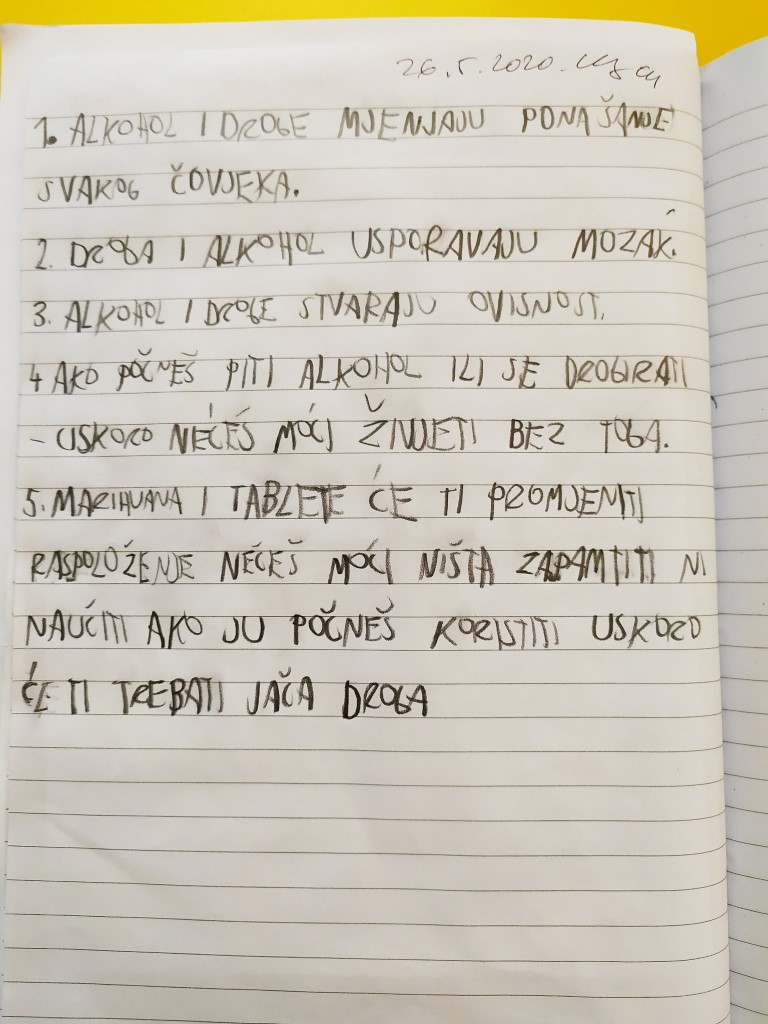 26.5.2020.
1. ALKOHOL I DROGE MJENJAJU PONAŠANJE
SVAKOG ČOVJEKA.
2. DROGA I ALKOHOL USPORAVAJU MOZAK.
3. ALKOHOL I DROGE STVARAJU OVISNOST.
4 AKO POČNEŠ PITI ALKOHOL ILI SE DROGIRATI
- USKORO NEĆEŠ MOĆI ŽIVJETI BEZ TOGA.
5. MARIHUANA I TABLETE ĆE TI PROMJENITI
RASPOLOŽENJE NEĆEŠ MOĆI NIŠTA ZAPAMTITI NI
NAUČITI AKO JU POČNEŠ KORISTITI USKORO
ĆE TI TREBATI JAČA DROGA